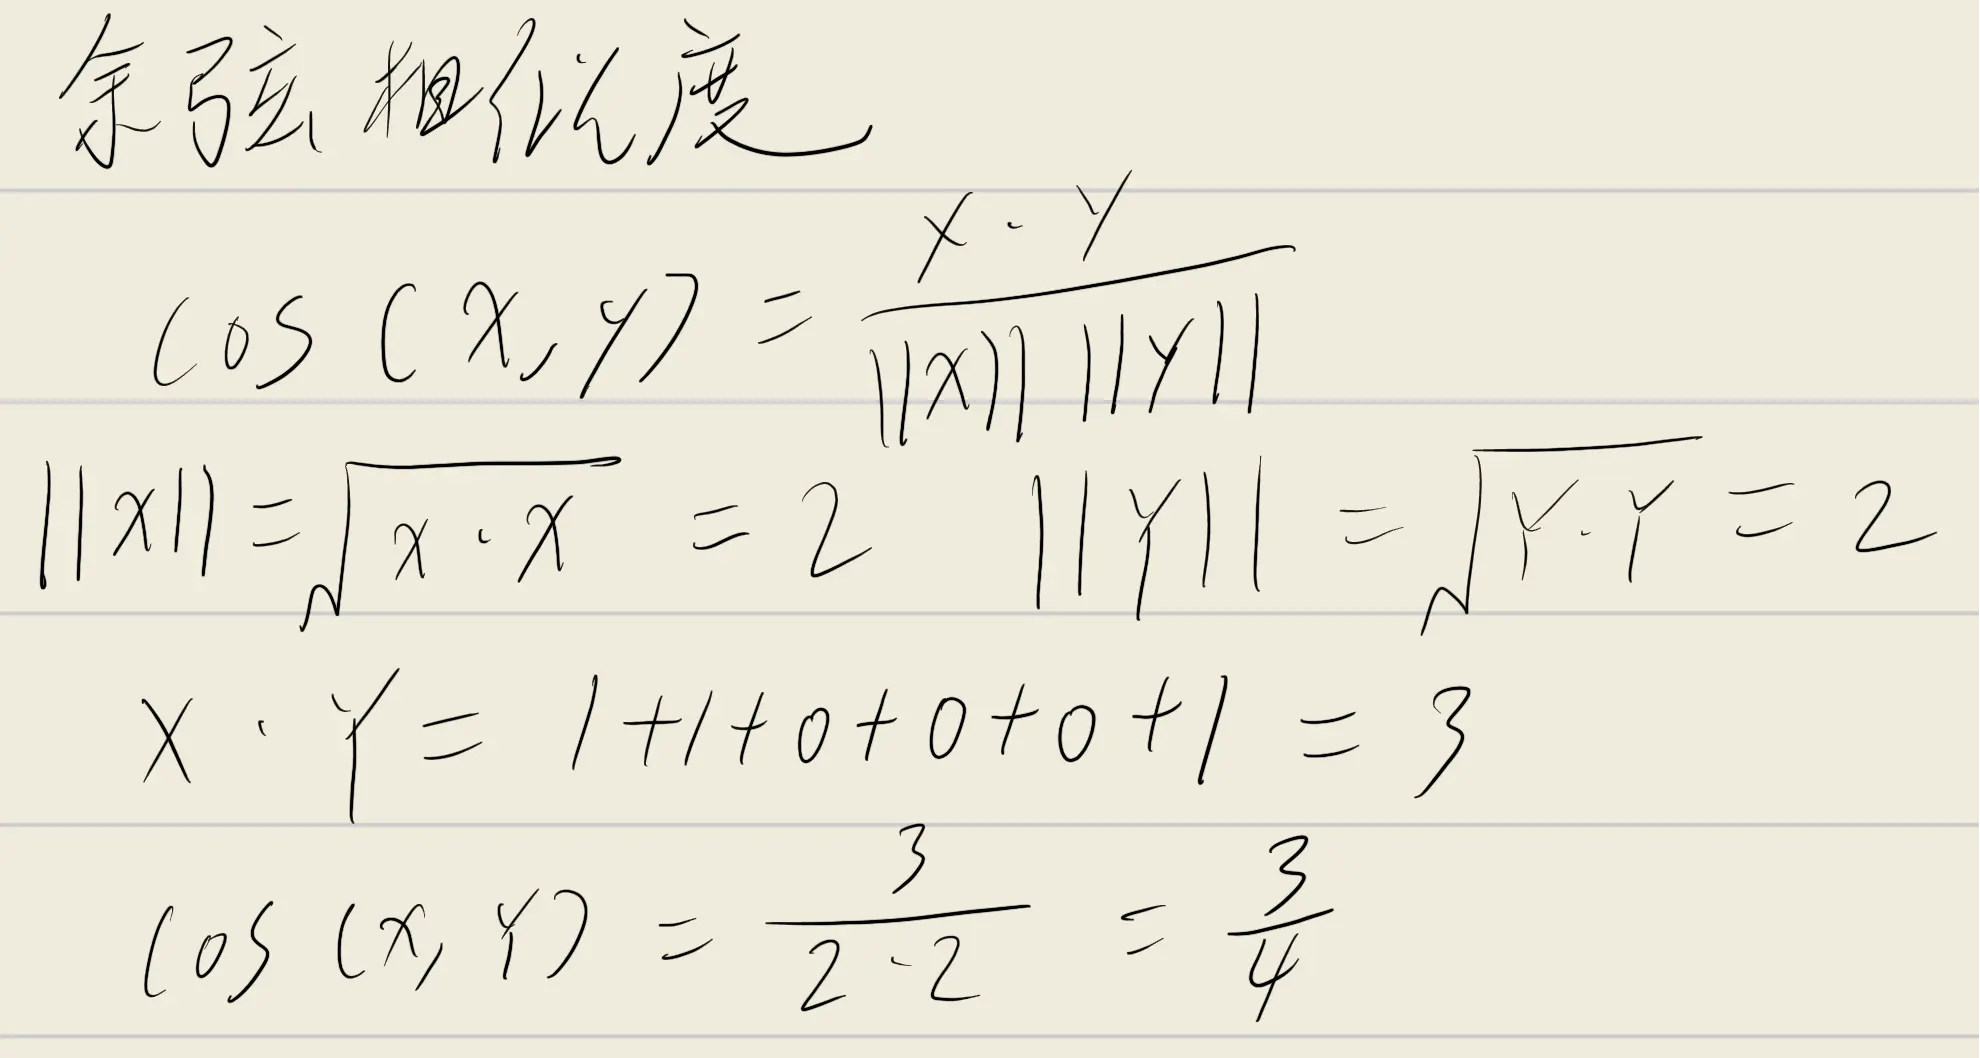 余弦相似度
cos(x,y) = \frac{x·y}{||x|| ||y||}
||x|| = \sqrt{x·x} = 2  ||Y|| = \sqrt{Y·Y} = 2
X·Y = 1+1+0+0+0+1 = 3
cos(x,Y) = \frac{3}{2·2} = \frac{3}{4}